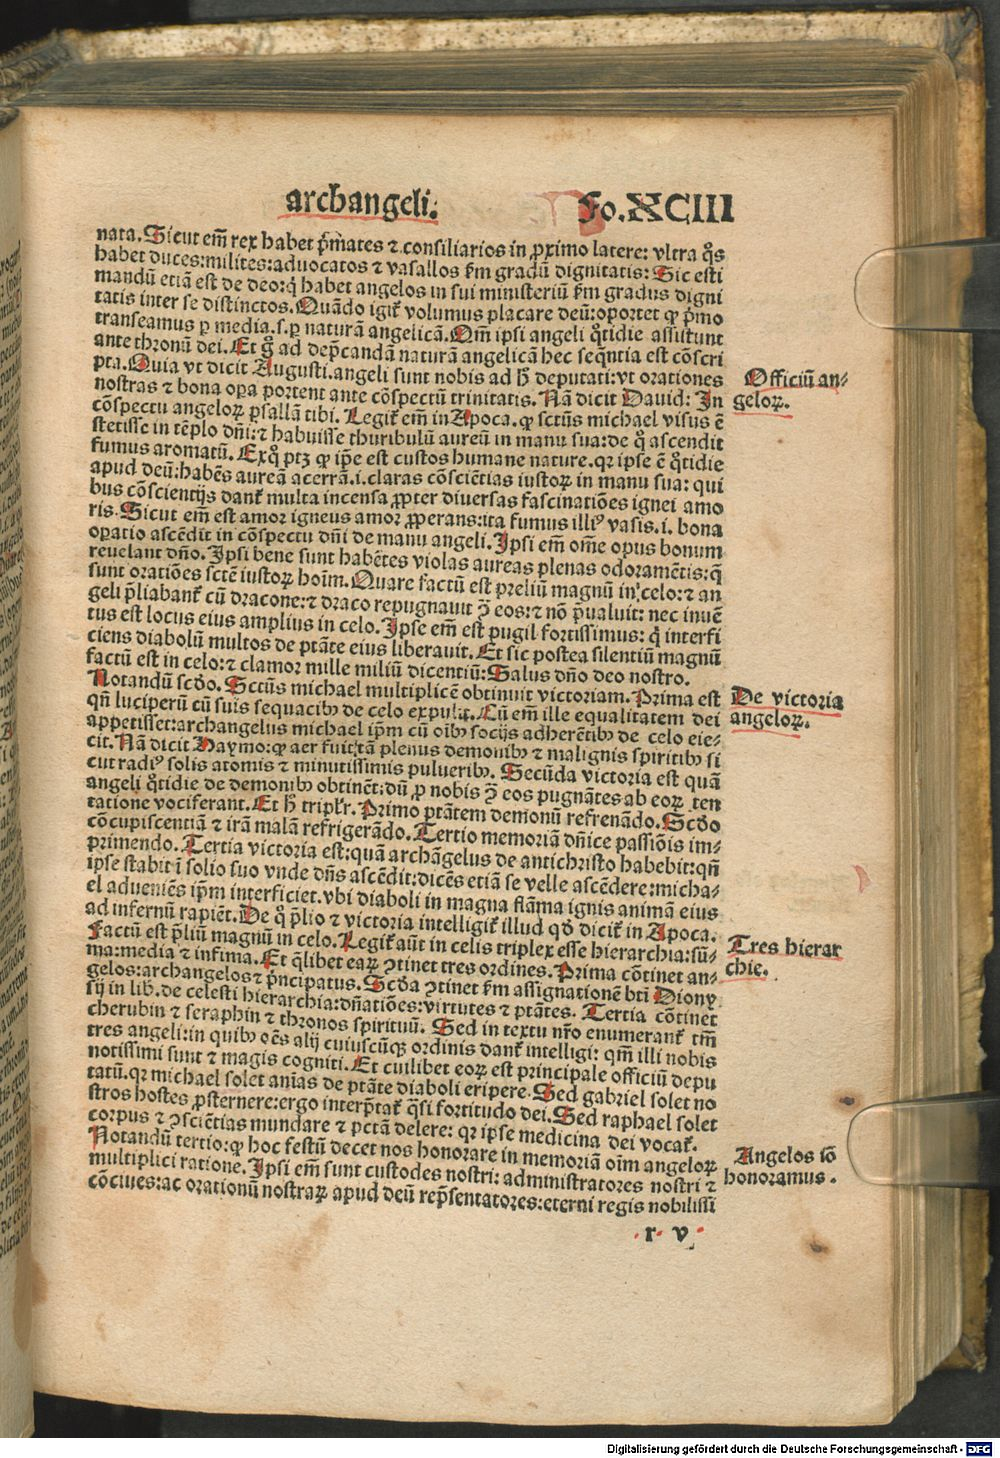 archangeli. Fo.XCIII
nata. Sicut em̄ rex habet p̄mates ⁊ consiliarios in ꝓximo latere: vltra q̄s
habet duces: milites: aduocatos ⁊ vasallos ẜm gradū dignitatis: Sic esti
mandū etiā est de deo: q̇ habet angelos in sui ministeriū ẜm gradus digni
tatis inter se distinctos. Quādo igit̄ volumus placare deū: oportet ꝙ p̄mo
transeamus ꝑ media. s. ꝑ naturā angelicā. Qm̄ ipsi angeli q̇tidie assistunt
ante thronū dei. Et g̊ ad dep̄candā naturā angelicā hec seq̄ntia est cōscri
pta. Quia vt dicit Augusti. angeli sunt nobis ad h̄ deputati: vt orationes
nostras ⁊ bona oꝑa portent ante cōspectū trinitatis. Nā dicit Dauid: In
cōspectu angeloꝝ psallā tibi. Legit̄ em̄ in Apoca. ꝙ sctūs michael visus ē
stetisse in tēplo dn̄i: ⁊ habuisse thuribulū aureū in manu sua: de q̊ ascendit
fumus aromatū. Ex q̊ ptꝫ ꝙ ip̄e est custos humane nature. qꝛ ipse ē q̊tidie
apud deū: habēs aureā acerrā. i. claras cōsciētias iustoꝝ in manu sua: qui
bus cōscientijs dant̄ multa incensa ꝓpter diuersas fascinatiōes ignei amo
ris. Sicut em̄ est amor igneus amor ꝓperans: ita fumus illiꝰ vasis. i. bona
oꝑatio ascēdit in cōspectu dn̄i de manu angeli. Ipsi em̄ om̄e opus bonum
reuelant dn̄o. Ipsi bene sunt habētes violas aureas plenas odoramētis: q̄
sunt oratiōes sctē iustoꝝ hoīm. Quare factū est preliū magnū in celo: ⁊ an
geli p̄liabant̄ cū dracone: ⁊ draco repugnauit ꝯ eos: ⁊ nō p̄ualuit: nec inuē
tus est locus eius amplius in celo. Ipse em̄ est pugil fortissimus: q̇ interfi
ciens diabolū multos de ptāte eius liberauit. Et sic postea silentiū magnū
factū est in celo: ⁊ clamor mille miliū dicentiū: Salus dn̄o deo nostro.
Notandū scḋo. Sctūs michael multiplicē obtinuit victoriam. Prima est
qn̄ luciperū cū suis sequacibꝰ de celo expulit. Cū em̄ ille equalitatem dei
appetisset: archangelus michael ip̄m cū oībꝰ socijs adherētibꝰ de celo eie
cit. Nā dicit Haymo: ꝙ aer fuit tā plenus demonibꝰ ⁊ malignis spiritibꝰ si
cut radiꝰ solis atomis ⁊ minutissimis pulueribꝰ. Secūda victoria est quā
angeli q̊tidie de demonibꝰ obtinēt: dū ꝓ nobis ꝯ eos pugnātes ab eoꝝ ten
tatione vociferant. Et h̄ triplr̄. Primo ptātem demonū refrenādo. Scḋo
cōcupiscentiā ⁊ irā malā refrigerādo. Tertio memoriā dn̄ice passiōis im-
primendo. Tertia victoria est: quā archāgelus de antichristo habebit: qn̄
ipse stabit ī solio suo vnde dn̄s ascēdit: dicēs etiā se velle ascēdere: micha-
el adueniēs ip̄m interficiet. vbi diaboli in magna flāma ignis animā eius
ad infernū rapiēt. De q̊ p̄lio ⁊ victoria intelligit̄ illud qḋ dicit̄ in Apoca.
Factū est p̄liū magnū in celo. Legit̄ aūt in celis triplex esse hierarchia: sū-
ma: media ⁊ infima. Et q̄libet eaꝝ ꝯtinet tres ordines. Prima cōtinet an-
gelos: archangelos ⁊ p̄ncipatus. Scḋa ꝯtinet ẜm assignationē bt̄i Diony
sij in lib. de celesti hierarchia: dn̄atiōes: virtutes ⁊ ptātes. Tertia cōtinet
cherubin ⁊ seraphin ⁊ thronos spirituū. Sed in textu nr̄o enumerant̄ tm̄
tres angeli: in quibꝰ oēs alij cuiuscūqꝫ ordinis dant̄ intelligi: qm̄ illi nobis
notissimi sunt ⁊ magis cogniti. Et cuilibet eoꝝ est principale officiū depu
tatū. qꝛ michael solet aīas de ptāte diaboli eripere. Sed gabriel solet no
stros hostes ꝓsternere: ergo interp̄tat̄ q̄si fortitudo dei. Sed raphael solet
corpus ⁊ ꝯsciētias mundare ⁊ pctā delere: qꝛ ipse medicina dei vocat̄.
Notandū tertio: ꝙ hoc festū decet nos honorare in memoriā oīm angeloꝝ
multiplici ratione. Ipsi em̄ sunt custodes nostri: administratores nostri ⁊
cōciues: ac orationū nostraꝝ apud deū rep̄sentatores: eterni regis nobilissī
r v
Officiū an-
geloꝝ.
De victoria
angeloꝝ.
Tres hierar
chie.
Angelos iō
honoramus.
Digitalisierung gefördert durch die Deutsche Forschungsgemeinschaft - DFG